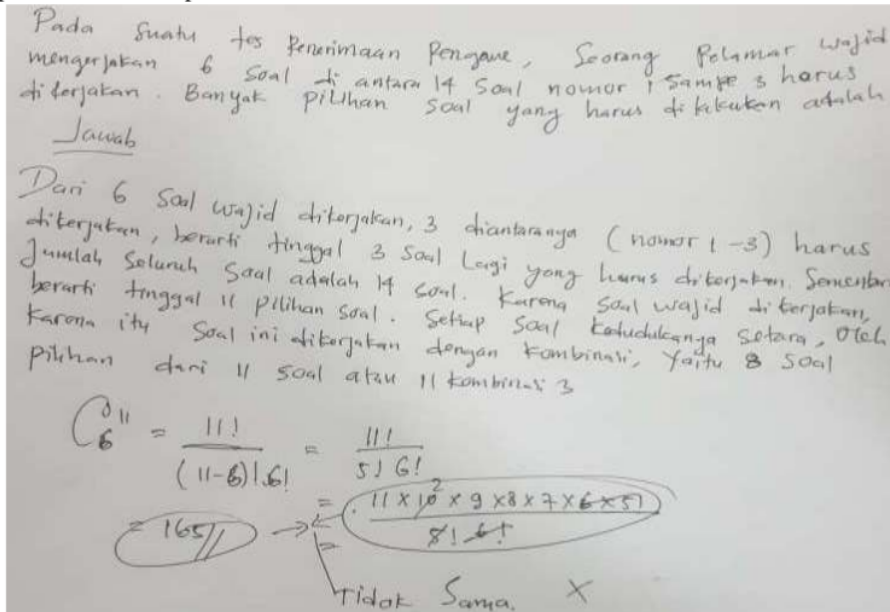 Pada suatu tes Penerimaan Pengawe, Seorang Pelamar wajid
mengerjakan 6 Soal di antara 14 Soal nomor 1 Sampe 3 harus
dikerjakan. Banyak pilihan soal yang harus di lakukan adalah
Jawab
Dari 6 Soal wajid dikerjakan, 3 diantaranya (nomor 1-3) harus
dikerjakan, berarti tinggal 3 Soal Lagi yang harus dikerjakan. Sementara
Jumlah Seluruh Soal adalah 14 soal. Karena soal wajid di kerjakan,
berarti tinggal 11 pilihan soal. Setiap Soal kedudukanya Setara, Oleh
Karena itu Soal ini dikerjakan dengan kombinasi, Yaitu 8 Soal
Pilihan dari 11 soal atau 11 kombinasi 3
C 11 6 = 11! / (11-6)!.6! = 11! / 5! 6!
= 11 x 10 2 x 9 x 8 x 7 x 6 x 5! /
= 165 //
Tidak Sama. X